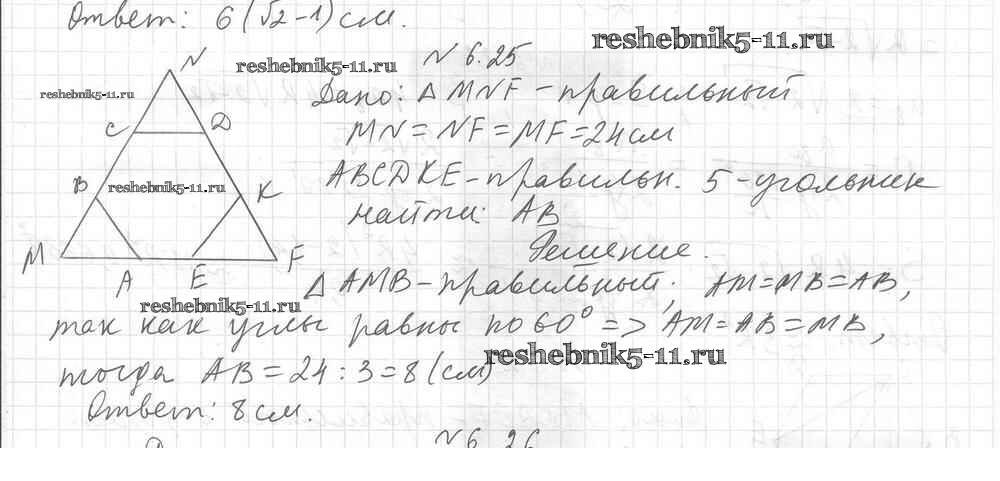 Ответ: 6(√2-1) см.
reshebnik5-11.ru
N 6.25
reshebnik5-11.ru
reshebnik5-11.ru
Дано: Δ MNF - правильный
MN = NF = MF = 24 см
ABCDKE - правильн. 5-угольник
найти: AB
Решение.
N
C
D
B
reshebnik5-11.ru
K
M
F
A
E
Δ AMB - правильный; AM = MB = AB,
reshebnik5-11.ru
так как углы равны по 60° => AM = AB = MB,
reshebnik5-11.ru
тогда AB = 24 : 3 = 8 (см)
Ответ: 8 см.
N 6.26